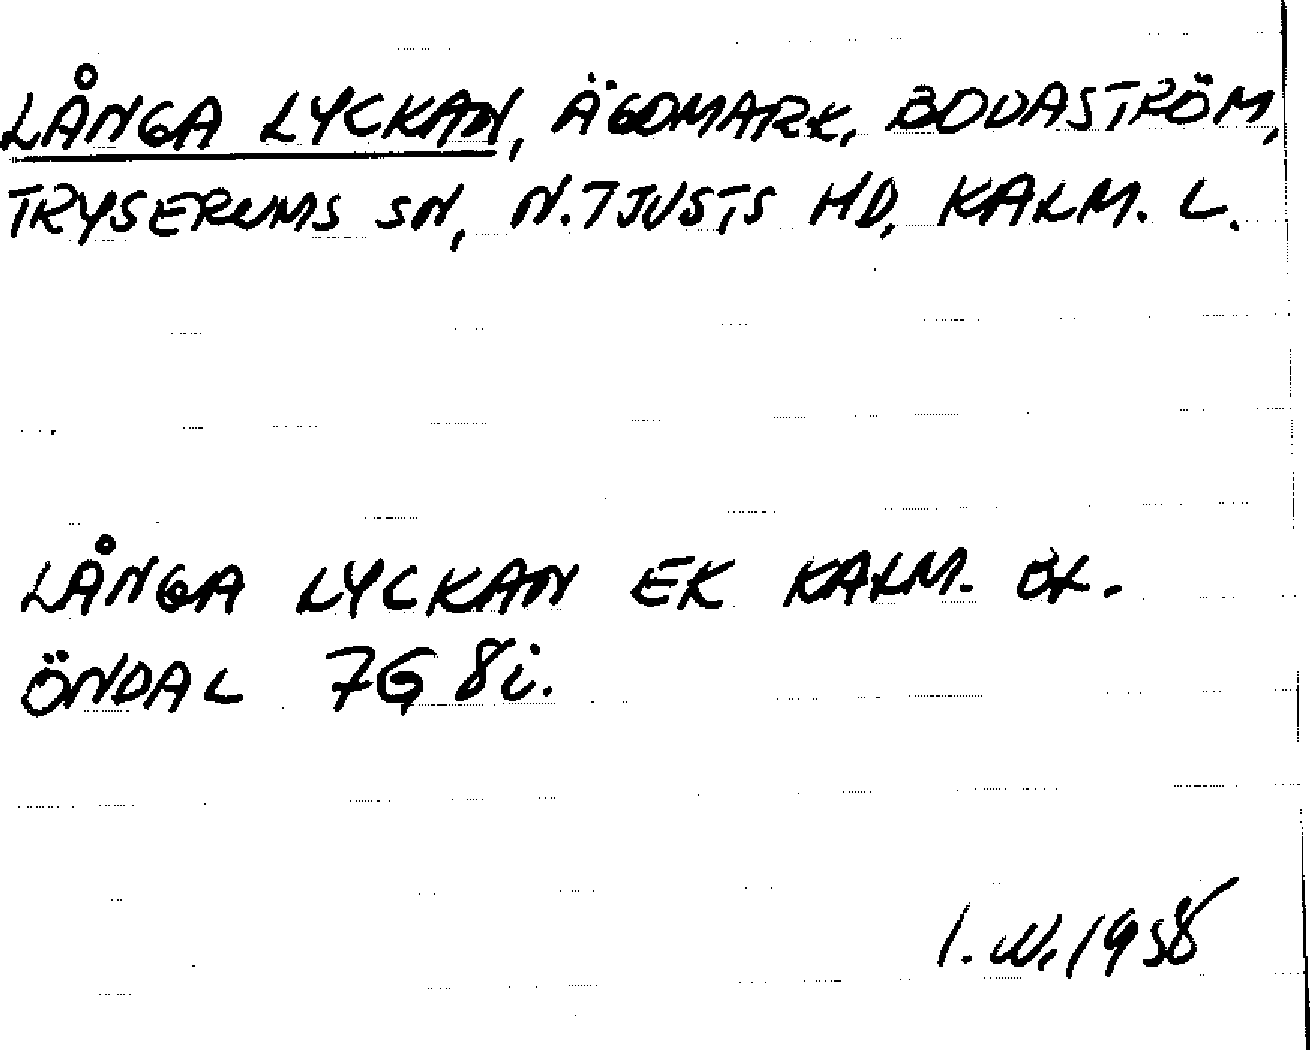 LÅNGA LYCKAN, ÄGOMARK, BODASTRÖM,
TRYSERUMS SN, N. TJUSTS HD, KALM. L.
LÅNGA LYCKAN EK KALM. BL.
ÖNDAL 7G 8i.
I. W. 1958